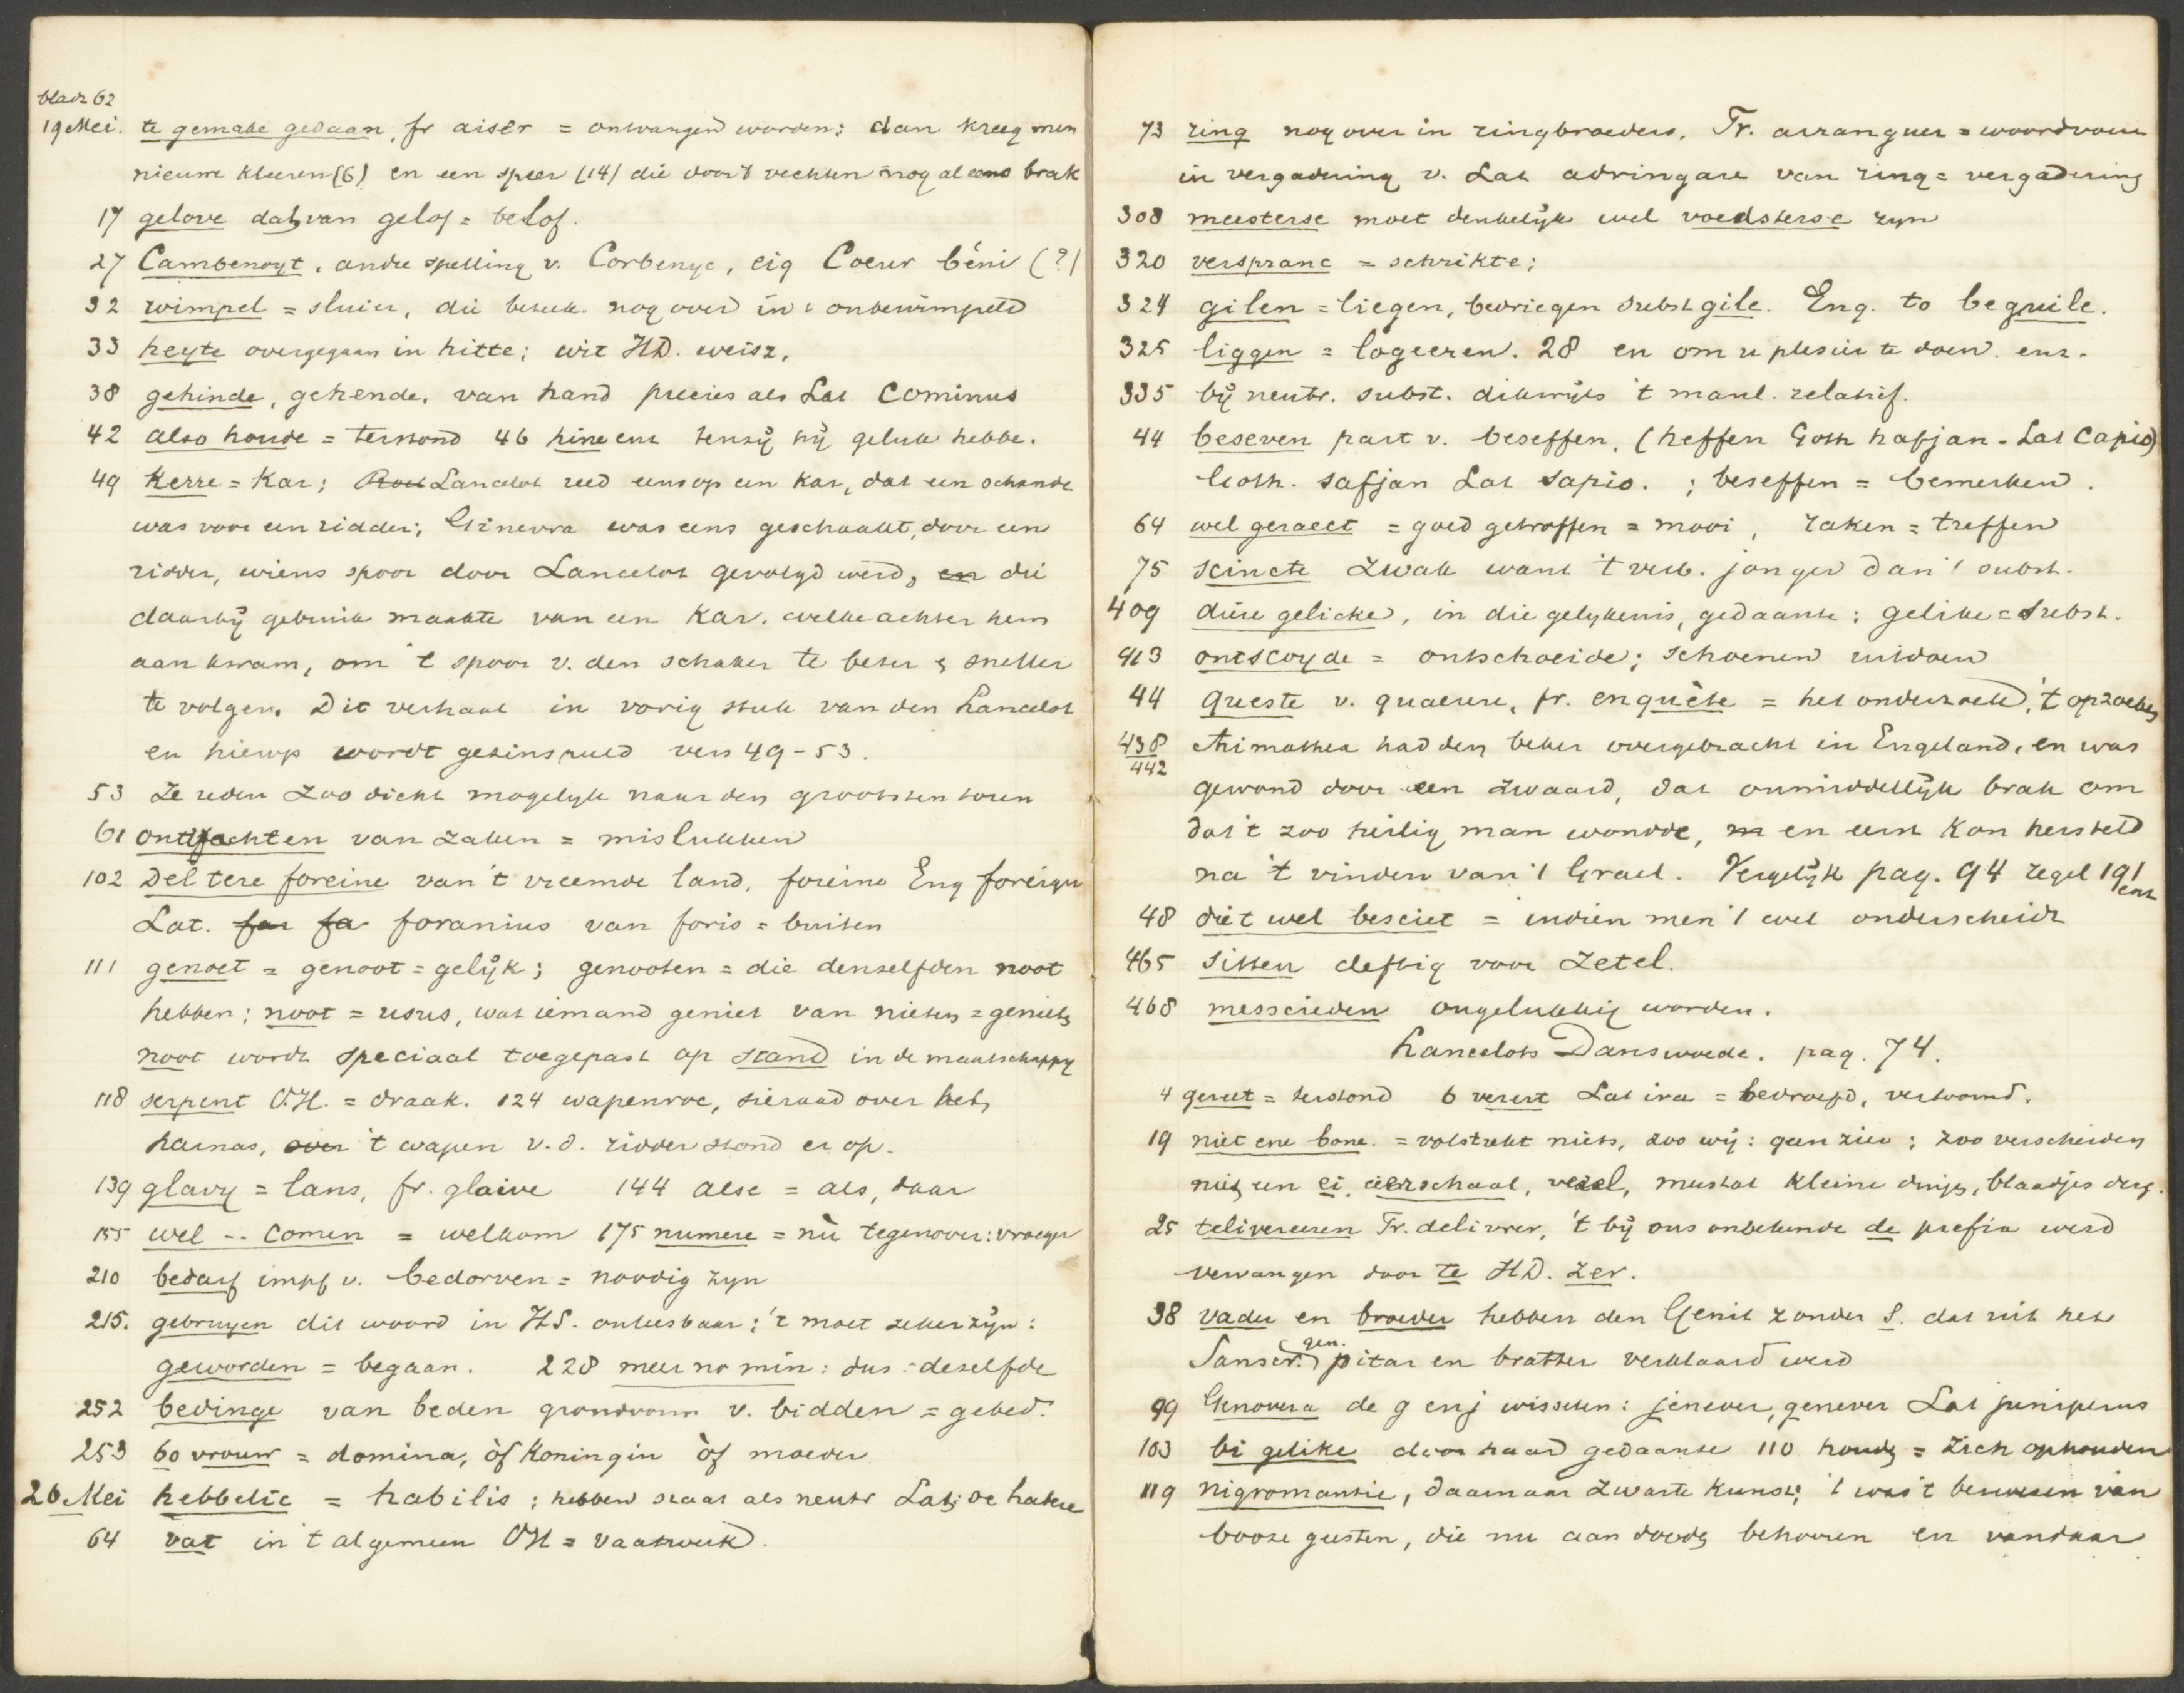 bladz 62
19 Mei. te gemake gedaan, fr aiser = ontvangen worden; dan kreeg men
nieuwe kleeren (6) en een speer (14) die door 't vechten nog al eens brak
17 gelove dat. van gelof = belof.
27 Cambenoyt, andre spelling v. Corbenyc, eig Coeur béni (?)
32 wimpel = sluier, die beteek. nog over in: onbewimpeld
33 heyte overgegaan in hitte; wit HD. weisz,
38 gehinde, gehende, van hand precies als Lat Cominus
42 also houde = terstond 46 hine ent tenzij hij geluk hebbe.
49 Kerre = Kar; Lancelot reed eens op een kar, dat een schande
was voor een ridder; Ginevra was eens geschaakt, door een
ridder, wiens spoor door Lancelot gevolgd werd, en die
daarbij gebruik maakte van een Kar. welke achter hem
aan kwam, om 't spoor v. den schaker te beter & sneller
te volgen. Dit verhaal in vorig stuk van den Lancelot
en hierop wordt gezinspeeld vers 49-53.
53 Ze reden zoo dicht mogelyk naar den grootsten toren
61 ontfachten van zaken = mislukken
102 Del tere foreine van 't vreemde land, foreine Eng foreign
Lat. for fa foranius van foris = buiten
111 genoet = genoot = gelijk; genooten = die denzelfden noot
hebben; noot = usus, wat iemand geniet van nieten = genieten
noot wordt speciaal toegepast op stand in de maatschappy
118 serpent O.H. = draak. 124 wapenroc, sieraad over het
harnas, over 't wapen v.d. ridder stond er op.
139 glavy = lans, fr. glaive 144 alse = als, daar
155 wel -- comen = welkom 175 numere = nù tegenover: vroeger
210 bedarf impf v. bedorven = noodig zyn
215. gebruyen dit woord in HS. onleesbaar; 't moet zeker zijn:
geworden = begaan. 228 meer no min: dus: dezelfde
252 bedinge van beden grondvorm v. bidden = gebed.
253 60 vrouw = domina, òf Koningin òf moeder
26 Mei hebbelic = habilis; hebben staat als neutr Lat; se habere
64 vat in 't algemeen OH = vaatwerk.
73 ring nog over in ringbroeders. Fr. arranguer = woordvoeren
in vergadering v. Lat adringare van ring = vergadering
308 meesterse moet denkelijk wel voedsterse zyn
320 verspranc = schrikte;
324 gilen = liegen, bedriegen subst gile. Eng. to beguile.
325 liggen = logeeren. 28 en om u plesier te doen. enz.
335 bij neutr. subst. dikwijls 't manl. relatief.
44 beseven part v. beseffen. (heffen Goth hafjan - Lat Capio)
Goth. safjan Lat sapio. ; beseffen = bemerken.
64 wel geraect = goed getroffen = mooi, raken = treffen
75 scincte zwak want 't verb. jonger dan 't subst.
409 diere gelicke, in die gelykenis, gedaante; gelike = subst.
413 ontscoyde = ontschoeide; schoenen uitdoen
44 queste v. quaerere, fr. enquète = het onderzoek, 't opzoeken
438
442 Arimathea had den beker overgebracht in Engeland, en was
gewond door een zwaard, dat onmiddellijk brak om
dat 't zoo heilig man wondde, en eerst kon hersteld
na 't vinden van 't Graal. Vergelijk pag. 94 regel 191
enz
48 diet wel besciet = indien men 't wel onderscheidt
465 sitten deftig voor zetel.
468 messcieden ongelukkig worden.
Lancelots Danswoede. pag. 74.
4 gereet = terstond 6 verert Lat ira = bedroefd, vertoornd.
19 niet ene bone. = volstrekt niets, zoo wij: geen zier; zoo verscheiden
niet een ei, aerschaal, vezel, meestal kleine dinges, blaadjes derg.
25 teliverееren Fr. delivrer, 't bij ons onbekende de prefix werd
vervangen door te HD. zer.
38 vader en broeder hebben den Genit zonder s. dat uit het
gen.
Sanscr. pitar en brather verklaard werd
99 Genovera de g en j wisselen: jenever, genever Lat juniperus
103 bi gelike door haar gedaante 110 houden = zich ophouden
119 nigromantie, daarnaar zwarte kunst; 't was 't bezweren van
booze geesten, die nu aan dooden behooren en vandaar